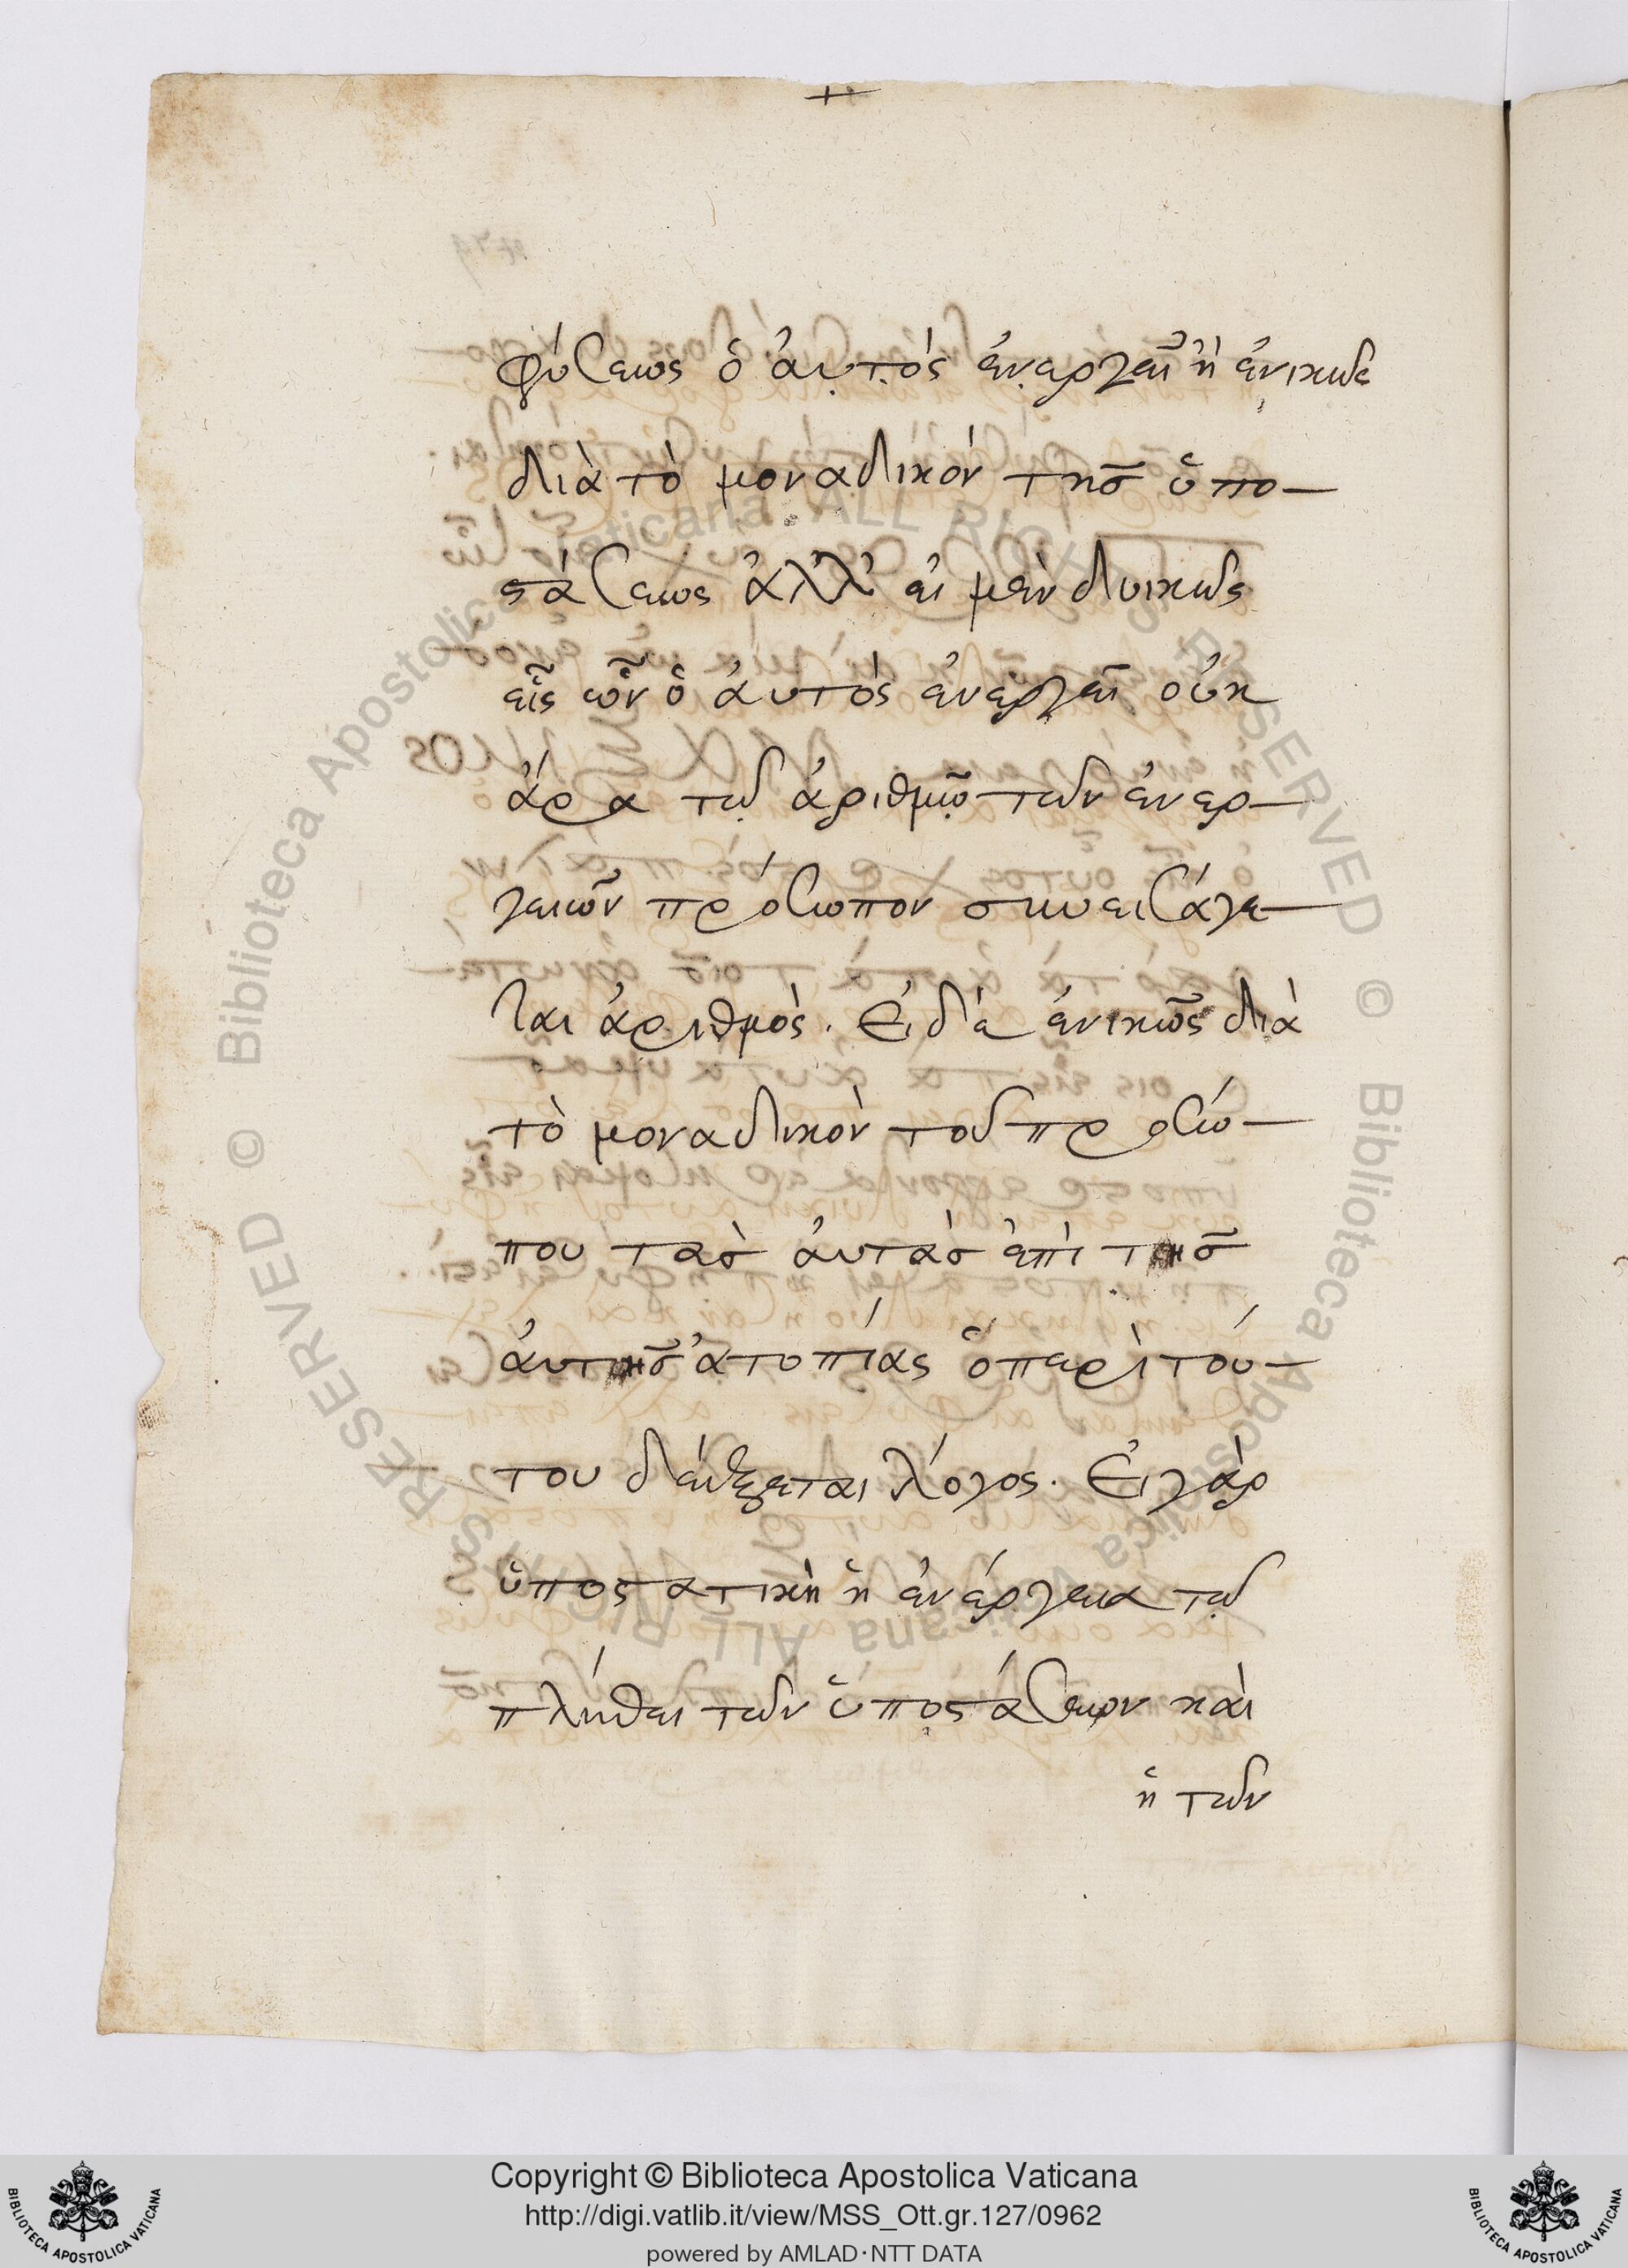 +
φύσεως ὁ ἀυτὸς ἐνεργεῖ ἢ ἑνικῶς
διὰ τὸ μοναδικὸν τῆσ ὑπο-
στάσεως ἀλλ' ἐι μὲν δυικῶς
εἷς ὢν ὁ ἀυτὸς ἐνεργεῖ οὐκ
ἄρα τῷ ἀριθμῷ τῶν ἐνερ-
γειῶν πρόσωπον συνεισάγε-
ται ἀριθμὸς. Ἐι δὲ ἑνικῶς διὰ
τὸ μοναδικὸν τοῦ προσώ-
που τὰσ ἀυτὰσ ἐπὶ τῆσ
ἀυτῆσ ἀτοπίας ὁ περὶ τού-
του δείξεται λόγος. Ἐι γὰρ
ὑποστατικὴ ἡ ἐνέργεια τῷ
πλήθει τῶν ὑποστάσεων καὶ
ἡ τῶν
Copyright © Biblioteca Apostolica Vaticana
http://digi.vatlib.it/view/MSS_Ott.gr.127/0962
powered by AMLAD·NTT DATA
BIBLIOTECA APOSTOLICA VATICANA
BIBLIOTECA APOSTOLICA VATICANA
© Biblioteca Apostolica Vaticana ALL RIGHTS RESERVED © Biblioteca Apostolica Vaticana ALL RIGHTS RESERVED